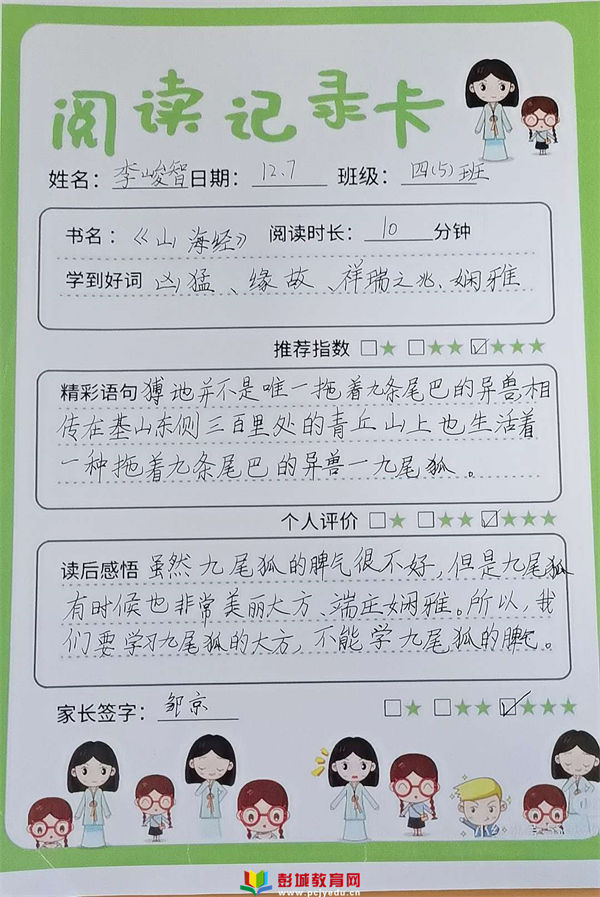 阅读记录卡
姓名：李峻智 日期：12.7 班级：四(5)班
书名：《山海经》 阅读时长：10分钟
学到好词 凶猛、缘故、祥瑞之兆、娴雅
推荐指数 □★ □★★ ☑★★★
精彩语句 猼訑并不是唯一拖着九条尾巴的异兽,相
传在基山东侧三百里处的青丘山上也生活着
一种拖着九条尾巴的异兽一九尾狐。
个人评价 □★ □★★ ☑★★★
读后感悟 虽然九尾狐的脾气很不好,但是九尾狐
有时候也非常美丽大方、端庄娴雅。所以,我
们要学习九尾狐的大方,不能学九尾狐的脾气。
家长签字：邹京 □★ □★★ ☑★★★
彭城教育网
www.pcjyedu.cn